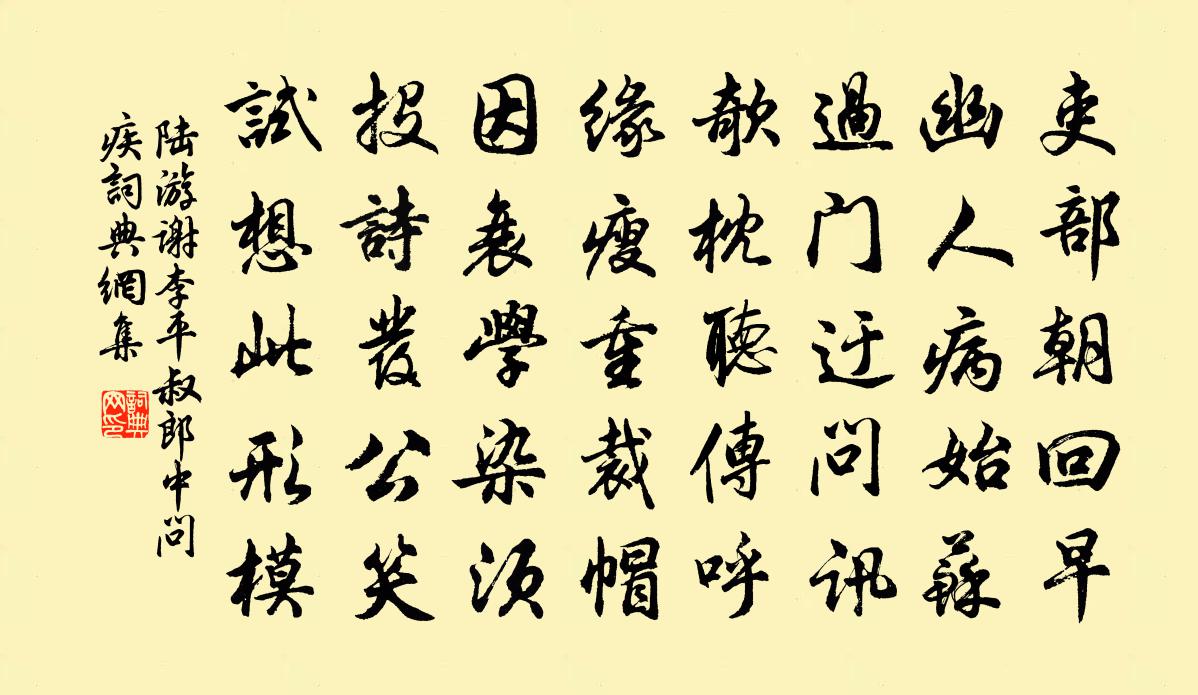 吏部朝回早
幽人病始蘇
過门迂问訊
欹枕聽傳呼
緣瘦重裁帽
因衰學染須
投詩發公笑
試想此形模
陆游谢李平叔郎中问
疾詞典網集
詞典网印